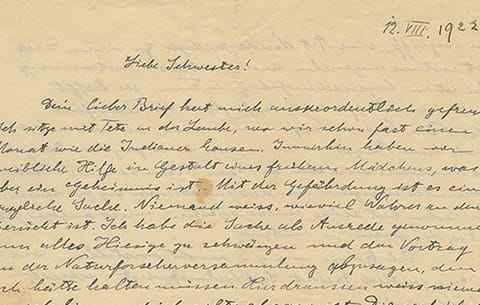 12. VIII. 1922
Liebe Schwester!
Dein lieber Brief hat mich ausserordentlich gefreu
Ich sitze mit Tete in der Laube, wo wir schon fast einen
Monat wie die Indianer hausen. Immerhin haben wir
weibliche Hilfe in Gestalt eines früheren Mädchens, was
ber ein Geheimnis ist. Mit der Gefährdung ist es ein
Sache. Niemand weiss, wieviel Wahres an dem
erücht ist. Ich habe die Sache als Ausrede genommen
um alles Hiesige zu schwänzen und den Vortrag
n der Naturforscherversammlung abzusagen, den
ich hätte halten müssen. Hier draussen weiss niema